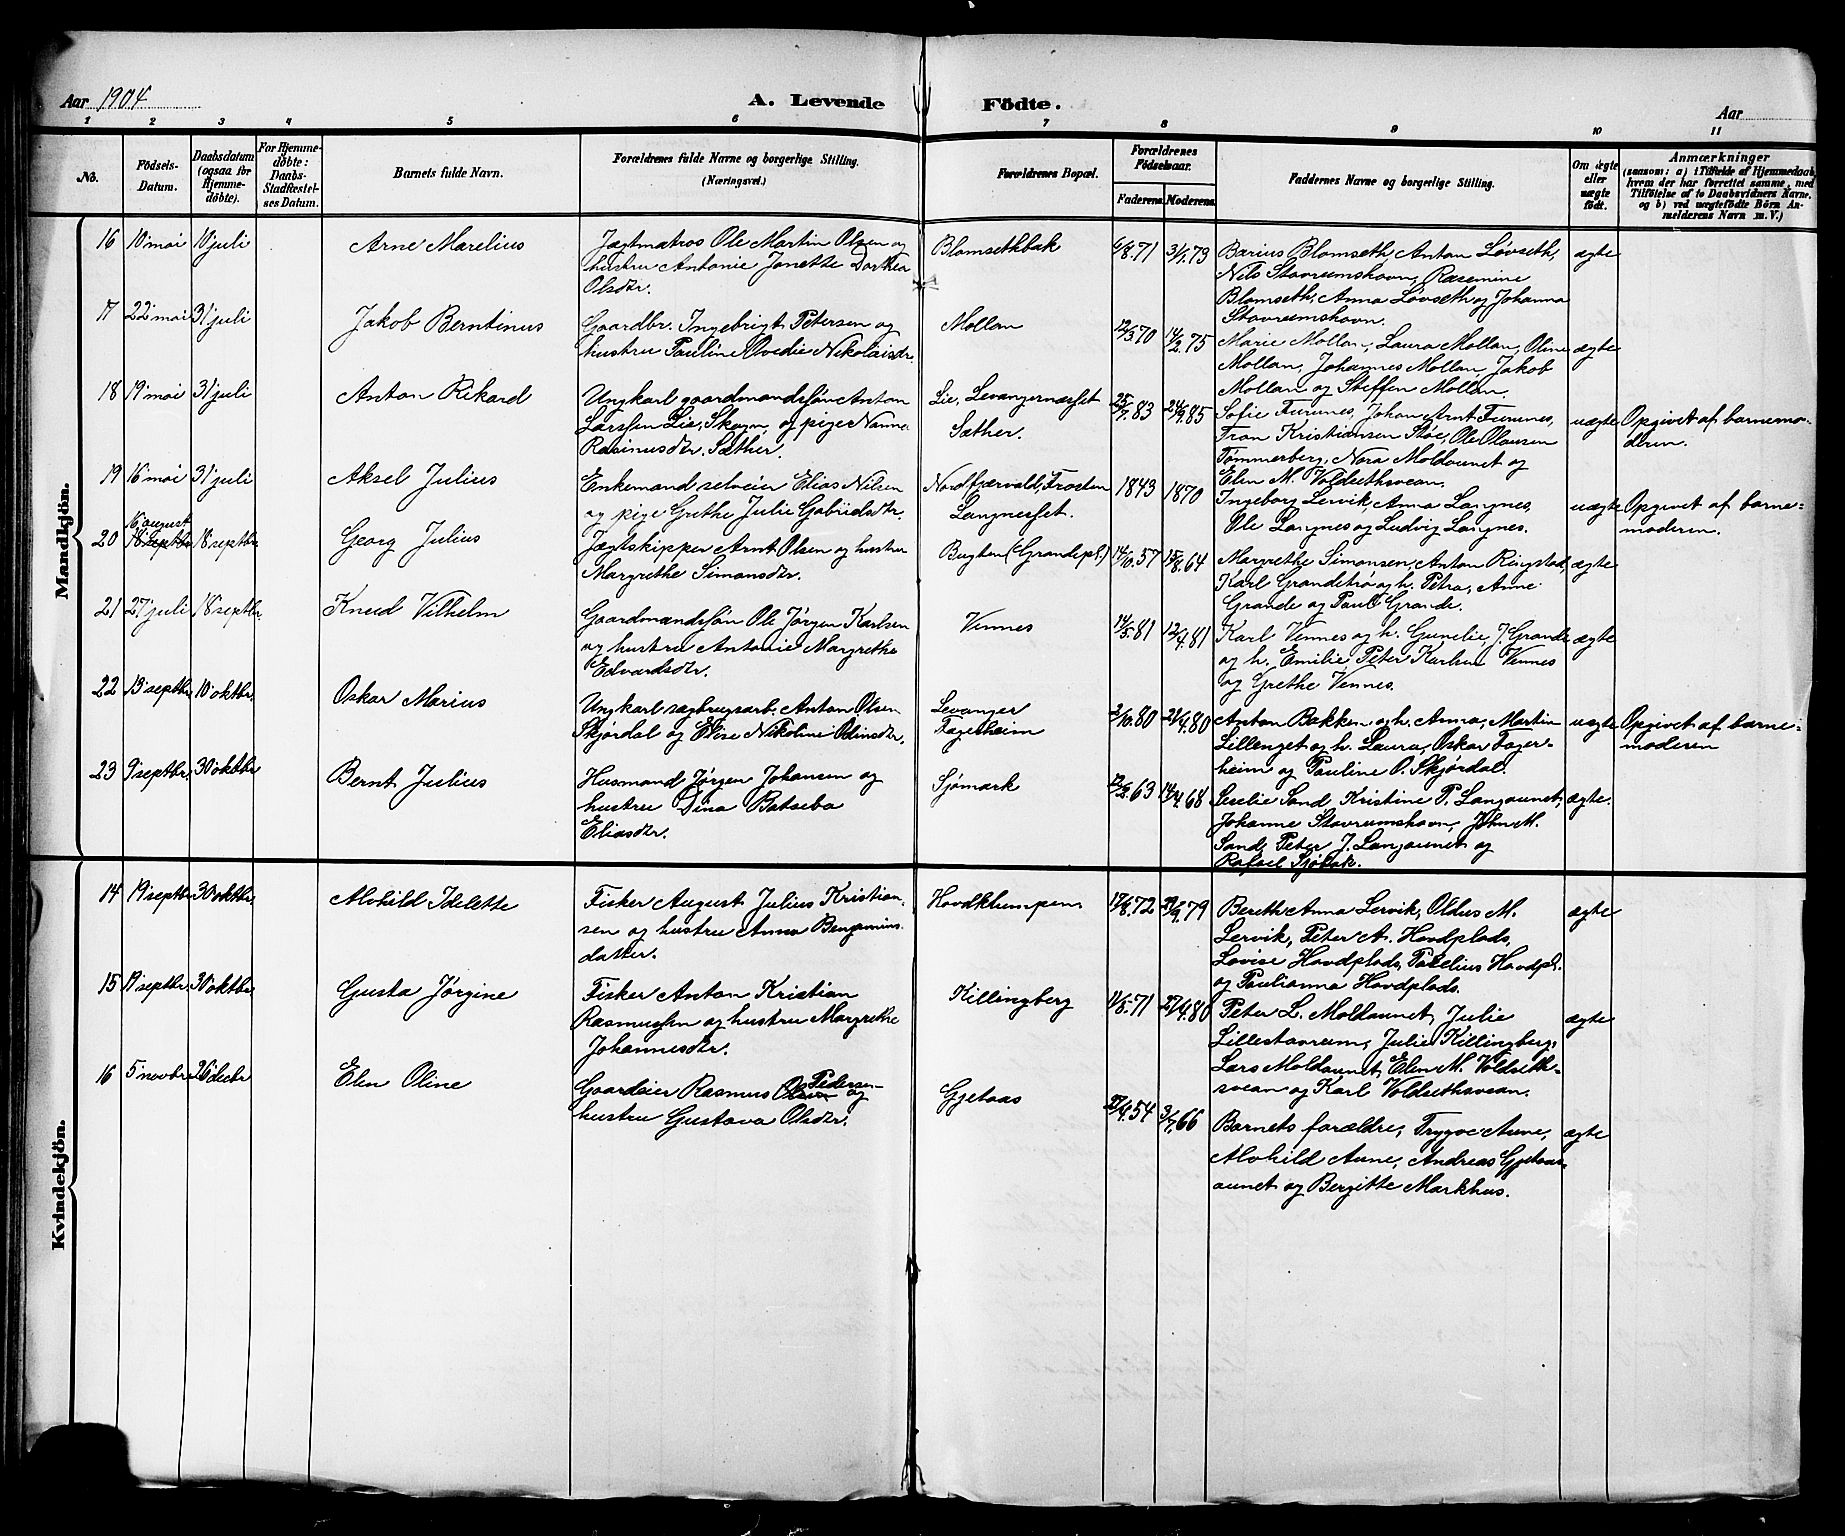 Aar 1904
A. Levende Födte.
Aar
1 2 3 4 5 6 7 8 9 10 11
No.
Födsels-Datum.
Daabsdatum (ogsaa for Hjemmedöbte).
For Hjemmedøbte: Daabs-Stadfæstelses Datum.
Barnets fulde Navn.
Forældrenes fulde Navne og borgerlige Stilling.
(Næringsvei.)
Forældrenes Bopæl.
Forældrenes Födselsaar.
Faderens Moderens
Faddernes Navne og borgerlige Stilling.
Om ægte eller uægte födt.
Anmærkninger
(saasom: a) i Tilfælde af Hjemmedaab, hvem der har forrettet samme, med Tilföielse af to Daabsvidners Navne, og b) ved uægtefödte Börn Anmelderens Navn m. V.)
Mandkjön.
16 10 mai 10 juli Arne Marelius
Jægtmatros Ole Martin Olsen og
hustru Antonie Jonette Dorthea
Olsdtr.
Blomsethbak 6/8.71 3/1.79
Barius Blomseth, Anton Løvseth,
Nils Stavrumshovn, Rasmine
Blomseth, Anna Løvseth og Johanna
Stavrumshovn.
ægte
17 22 mai 31 juli Jakob Berntinus
Gaardbr. Ingebrigt Petersen og
hustru Pauline Ovedie Nikolaisdr.
Mollan 12/3.70 14/2.75
Marie Mollan, Laura Mollan, Oline
Mollan, Johannes Mollan, Jakob
Mollan og Steffen Mollan.
ægte
18 19 mai 31 juli Anton Rikard
Ungkarl gaardmandssøn Anton
Larssen Lie, Skogn, og pige Nanna
Rasmusdtr. Sæther.
Lie, Levangernæsset
Sæther.
25/7.83 24/9.85
Sofie Furunes, Johan Arnt Furunes,
Fran Kristiansen Støe, Ole Olausen
Tømmerberg, Nora Moldaunet og
Elen M. Voldsethsvean.
uægte
Opgivet af barnemo-
deren.
19 16 mai 31 juli Aksel Julius
Enkemand selveier Elias Nilsen
og pige Grethe Julie Gabrielsdtr.
Nordfjærvald, Frosten
Langnesset.
1843 1870
Ingeborg Lervik, Anna Langnes,
Ole Langnes og Ludvig Langnes.
uægte
Opgivet af barne-
moderen.
16 august
20 18 septbr 18 septbr Georg Julius
Jægtskipper Arnt Olsen og hustru
Margrethe Simonsdtr.
Bugten (Grandepl.) 14/10.57 15/8.64
Margrethe Simonsen, Anton Ringstad,
Karl Grandetrø og h. Petra, Anne
Grande og Paul Grande.
ægte
21 27 juli 18 septbr. Knud Vilhelm
Gaardmandssøn Ole Jørgen Karlsen
og hustru Antonie Margrethe
Edvardsdtr.
Vennes 14/5.81 12/4.81
Karl Vennes og h. Gunelie, J. Grande
og h. Emilie, Peter Karlsen Vennes
og Grethe Vennes.
ægte
22 13 septbr. 10 oktbr. Oskar Marius
Ungkarl sagbrugsarb. Anton Olsen
Skjørdal og Elise Nikoline Odinsdtr.
Levanger
Fagerheim
2/10.80 21/4.80
Anton Bakken og h. Anna, Martin
Lillenget og h. Laura, Oskar Fager-
heim og Pauline O. Skjørdal.
uægte
Opgivet af barne-
moderen
23 9 septbr. 30 oktbr Bernt Julius
Husmand Jørgen Johansen og
hustru Dina Batseba
Eliasdtr.
Sjømark 14/4.68
Seselie Sand, Kristine P. Langaunet,
Johanne Stavrumshovn, John M.
Sand, Peter J. Langaunet og
Rafael Sjøbak.
ægte.
Kvindekjön.
14 19 septbr 30 oktbr. Alvhild Idelette
Fisker August Julius Kristian-
sen og hustru Anna Benjamins-
datter.
Hovdklumpen 17/8.72 29/9.79
Bereth Anna Lervik, Oldus M.
Lervik, Peter A. Hovdplads,
Lovise Hovdplads, Paselius Hovdpl.
og Paulianna Hovdplads.
ægte
15 17 septbr. 30 oktbr. Gusta Jørgine
Fisker Anton Kristian
Rasmussen og hustru Margrethe
Johannesdtr.
Killingberg 11/5.71 27/4.80
Peter L. Moldaunet, Julie
Lillestavrum, Julie Killingberg,
Lars Moldaunet, Elen M. Voldseth-
svean og Karl Voldsethsvean.
ægte
16 5 novbr. 26 decbr Elen Oline
Pedersen
Gaardeier Rasmus Olsen og
hustru Gustava Olsdtr.
Gjetaas 27/4.54 3/7.66
Barnets forældre, Trygve Aune,
Alvhild Aune, Andreas Gjetaas-
aunet og Bergitte Markhus.
ægte